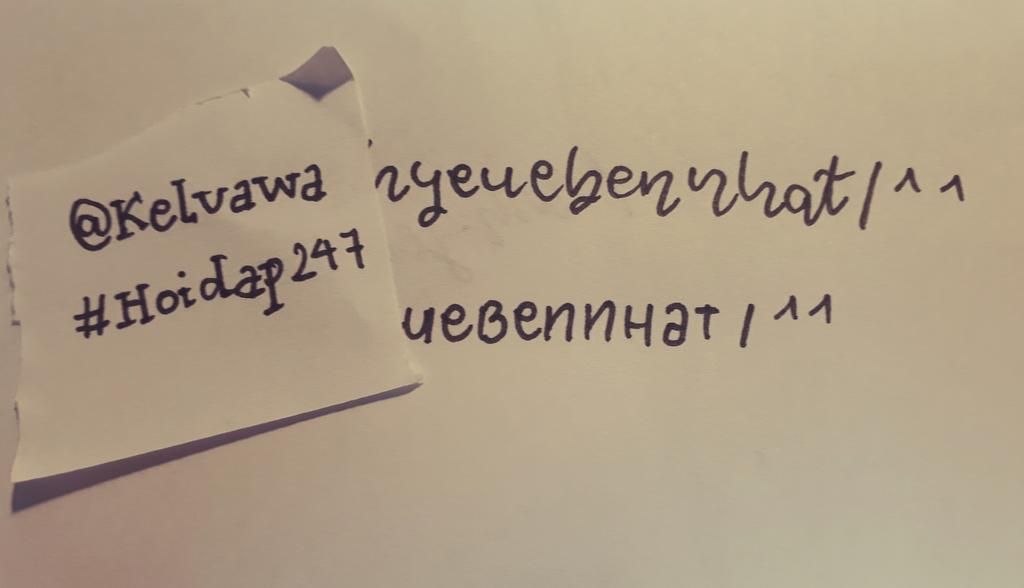 @Kelvawa
#Hoidap247
nyeuebennhat/^^
ueBennHat/^^